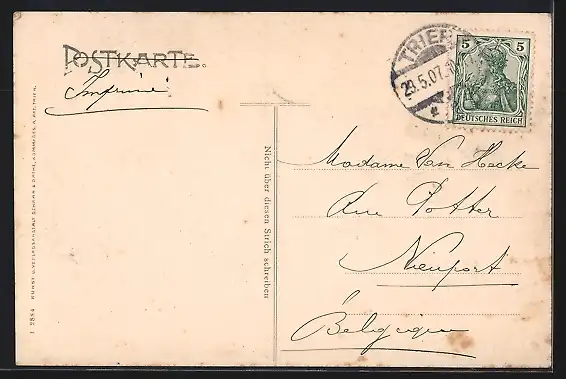 POSTKARTE.
Imprimé
TRIER
23.5.07.
5 5
DEUTSCHES REICH
Nicht über diesen Strich schreiben
Madame Van Hecke
Rue Potter
Nieuport
Belgique
KUNST U. VERLAGSANSTALT SCHAAR & DATHE, KOMM.-GES. A. AKT. TRIER.
1 2854